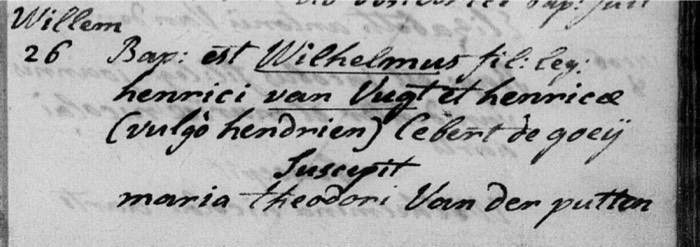 Willem
26 Bap: est Wilhelmus fil: leg:
henrici van Vugt et henricæ
(vulgò hendrien) Cebert de goeÿ
Suscepit
maria theodori Van der putten